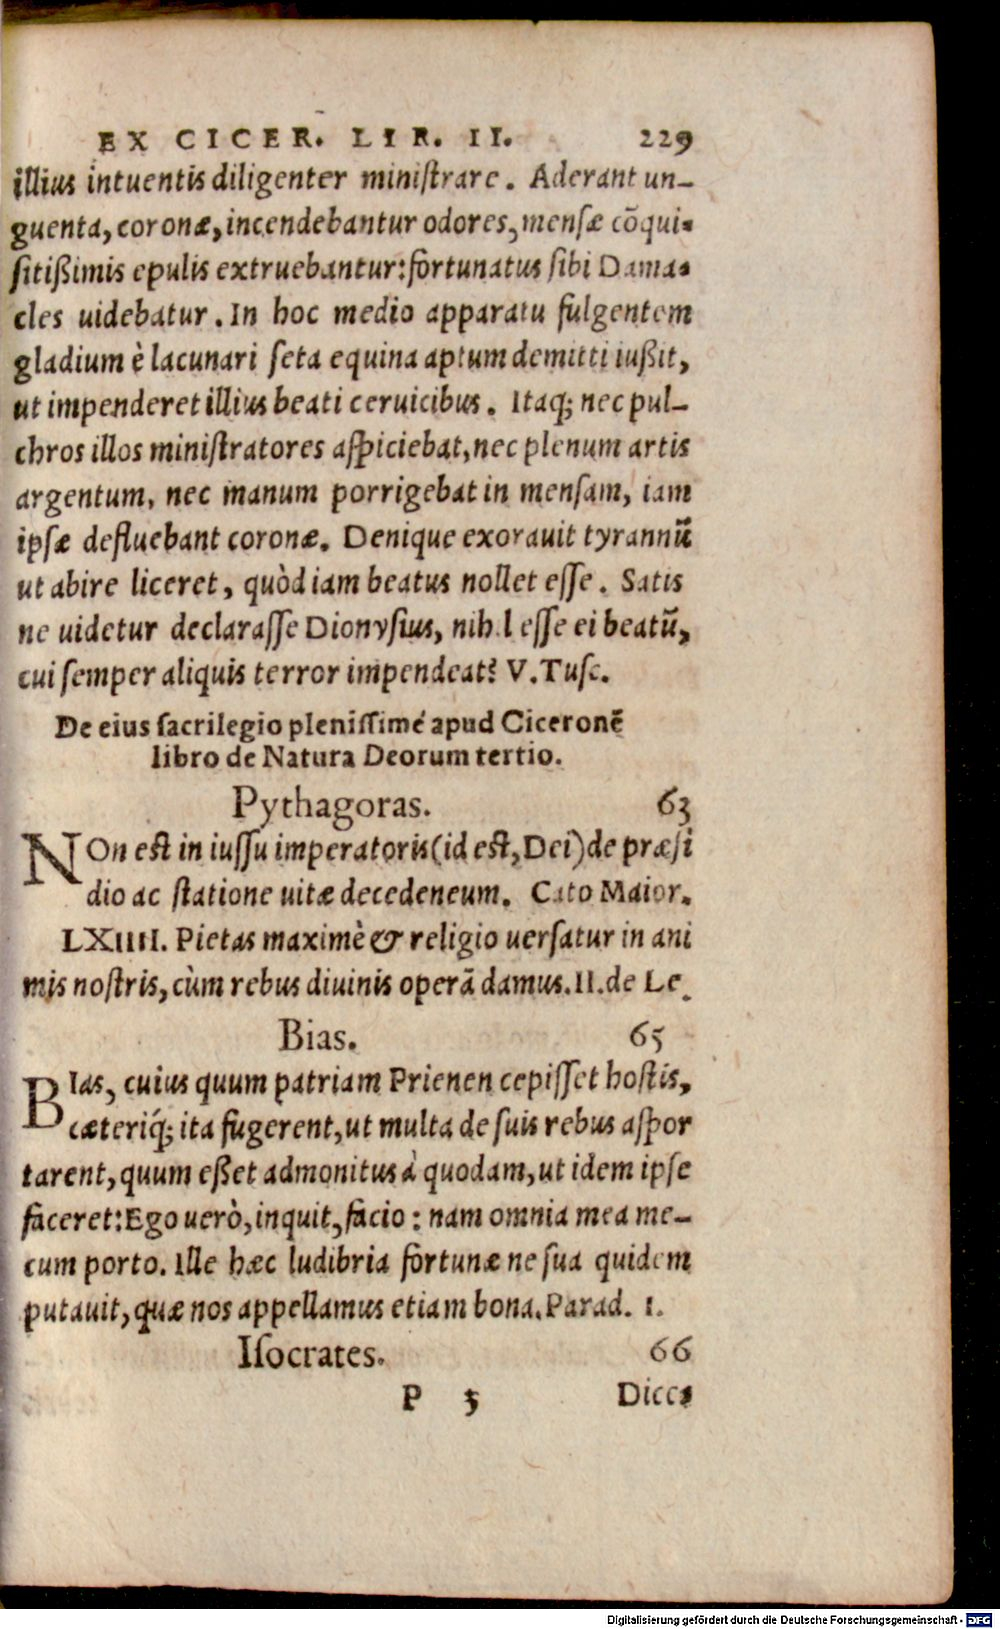 EX CICER. LIR. II. 229
illius intuentis diligenter miniſtrare. Aderant un-
guenta, coronæ, incendebantur odores, menſæ cōqui-
ſitißimis epulis extruebantur: fortunatus ſibi Dama-
cles uidebatur. In hoc medio apparatu fulgentem
gladium è lacunari ſeta equina aptum demitti iußit,
ut impenderet illius beati ceruicibus. Itaq; nec pul-
chros illos miniſtratores aſpiciebat, nec plenum artis
argentum, nec manum porrigebat in menſam, iam
ipſæ defluebant coronæ. Denique exorauit tyrannū
ut abire liceret, quòd iam beatus nollet eſſe. Satis
ne uidetur declaraſſe Dionyſius, nih l eſſe ei beatū,
cui ſemper aliquis terror impendeat? V. Tuſc.
De eius ſacrilegio pleniſſimé apud Ciceronē
libro de Natura Deorum tertio.
Pythagoras. 63
NOn eſt in iuſſu imperatoris (id eſt, Dei) de præſi
dio ac ſtatione uitæ decedeneum. Cato Maior.
LXIIII. Pietas maximè & religio uerſatur in ani
mis noſtris, cùm rebus diuinis operā damus. II. de Le.
Bias. 65
BIas, cuius quum patriam Prienen cepiſſet hoſtis,
cæteriq́; ita fugerent, ut multa de ſuis rebus aſpor
tarent, quum eßet admonitus à quodam, ut idem ipſe
faceret: Ego uerò, inquit, facio: nam omnia mea me-
cum porto. Ille hæc ludibria fortunæ ne ſua quidem
putauit, quæ nos appellamus etiam bona. Parad. 1.
Iſocrates. 66
P 3 Dicc-
Digitalisierung gefördert durch die Deutsche Forschungsgemeinschaft - DFG